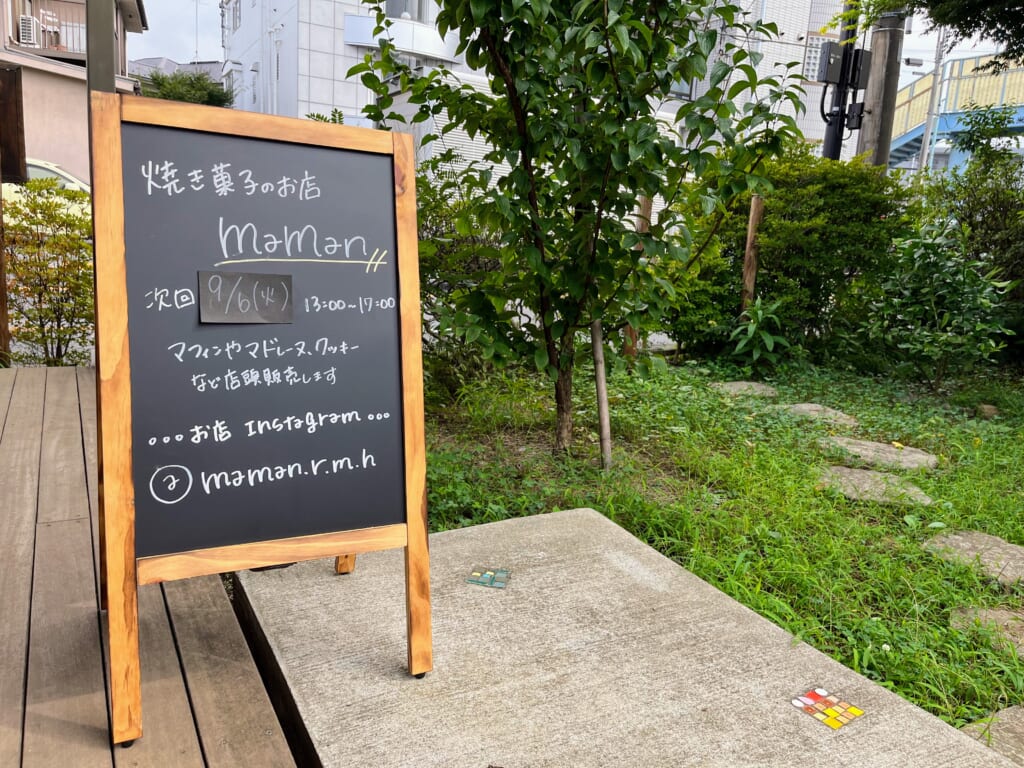 焼き菓子のお店
maman
次回 9/6(火) 13:00~17:00
マフィンやマドレーヌ、クッキー
など店頭販売します
•••お店 Instagram•••
@maman.r.m.h